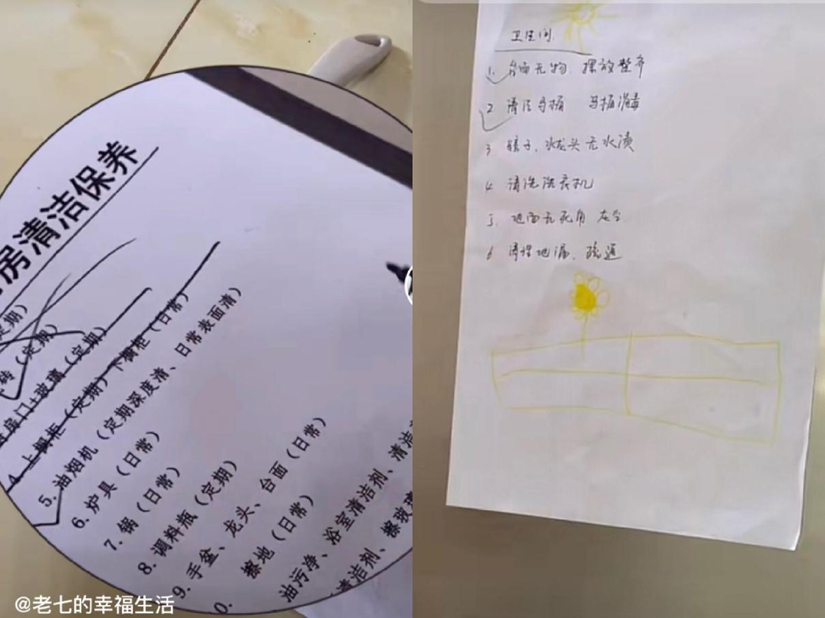 房清洁保养
(定期)
(定期)
房门+玻璃(定期)
4.上橱柜(定期)下橱柜(日常)
5.油烟机(定期深度清、日常表面清)
6.炉具(日常)
7.锅(日常)
8.调料瓶(定期)
9.手盆、龙头、台面(日常)
0.擦地(日常)
油污净、浴室清洁剂、清洁
清洁剂、擦玻璃
@老七的幸福生活
卫生间
1.台面无物 摆放整齐
2 清洁马桶 马桶消毒
3 镜子、水龙头无水渍
4 清洗洗衣机
5、地面无死角
6 清理地漏、疏通